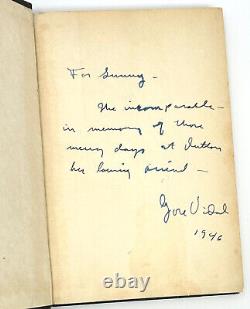 For Sunny –
The incomparable –
in memory of those
merry days at Dutton
her loving friend –
Gore Vidal
1946
ebay